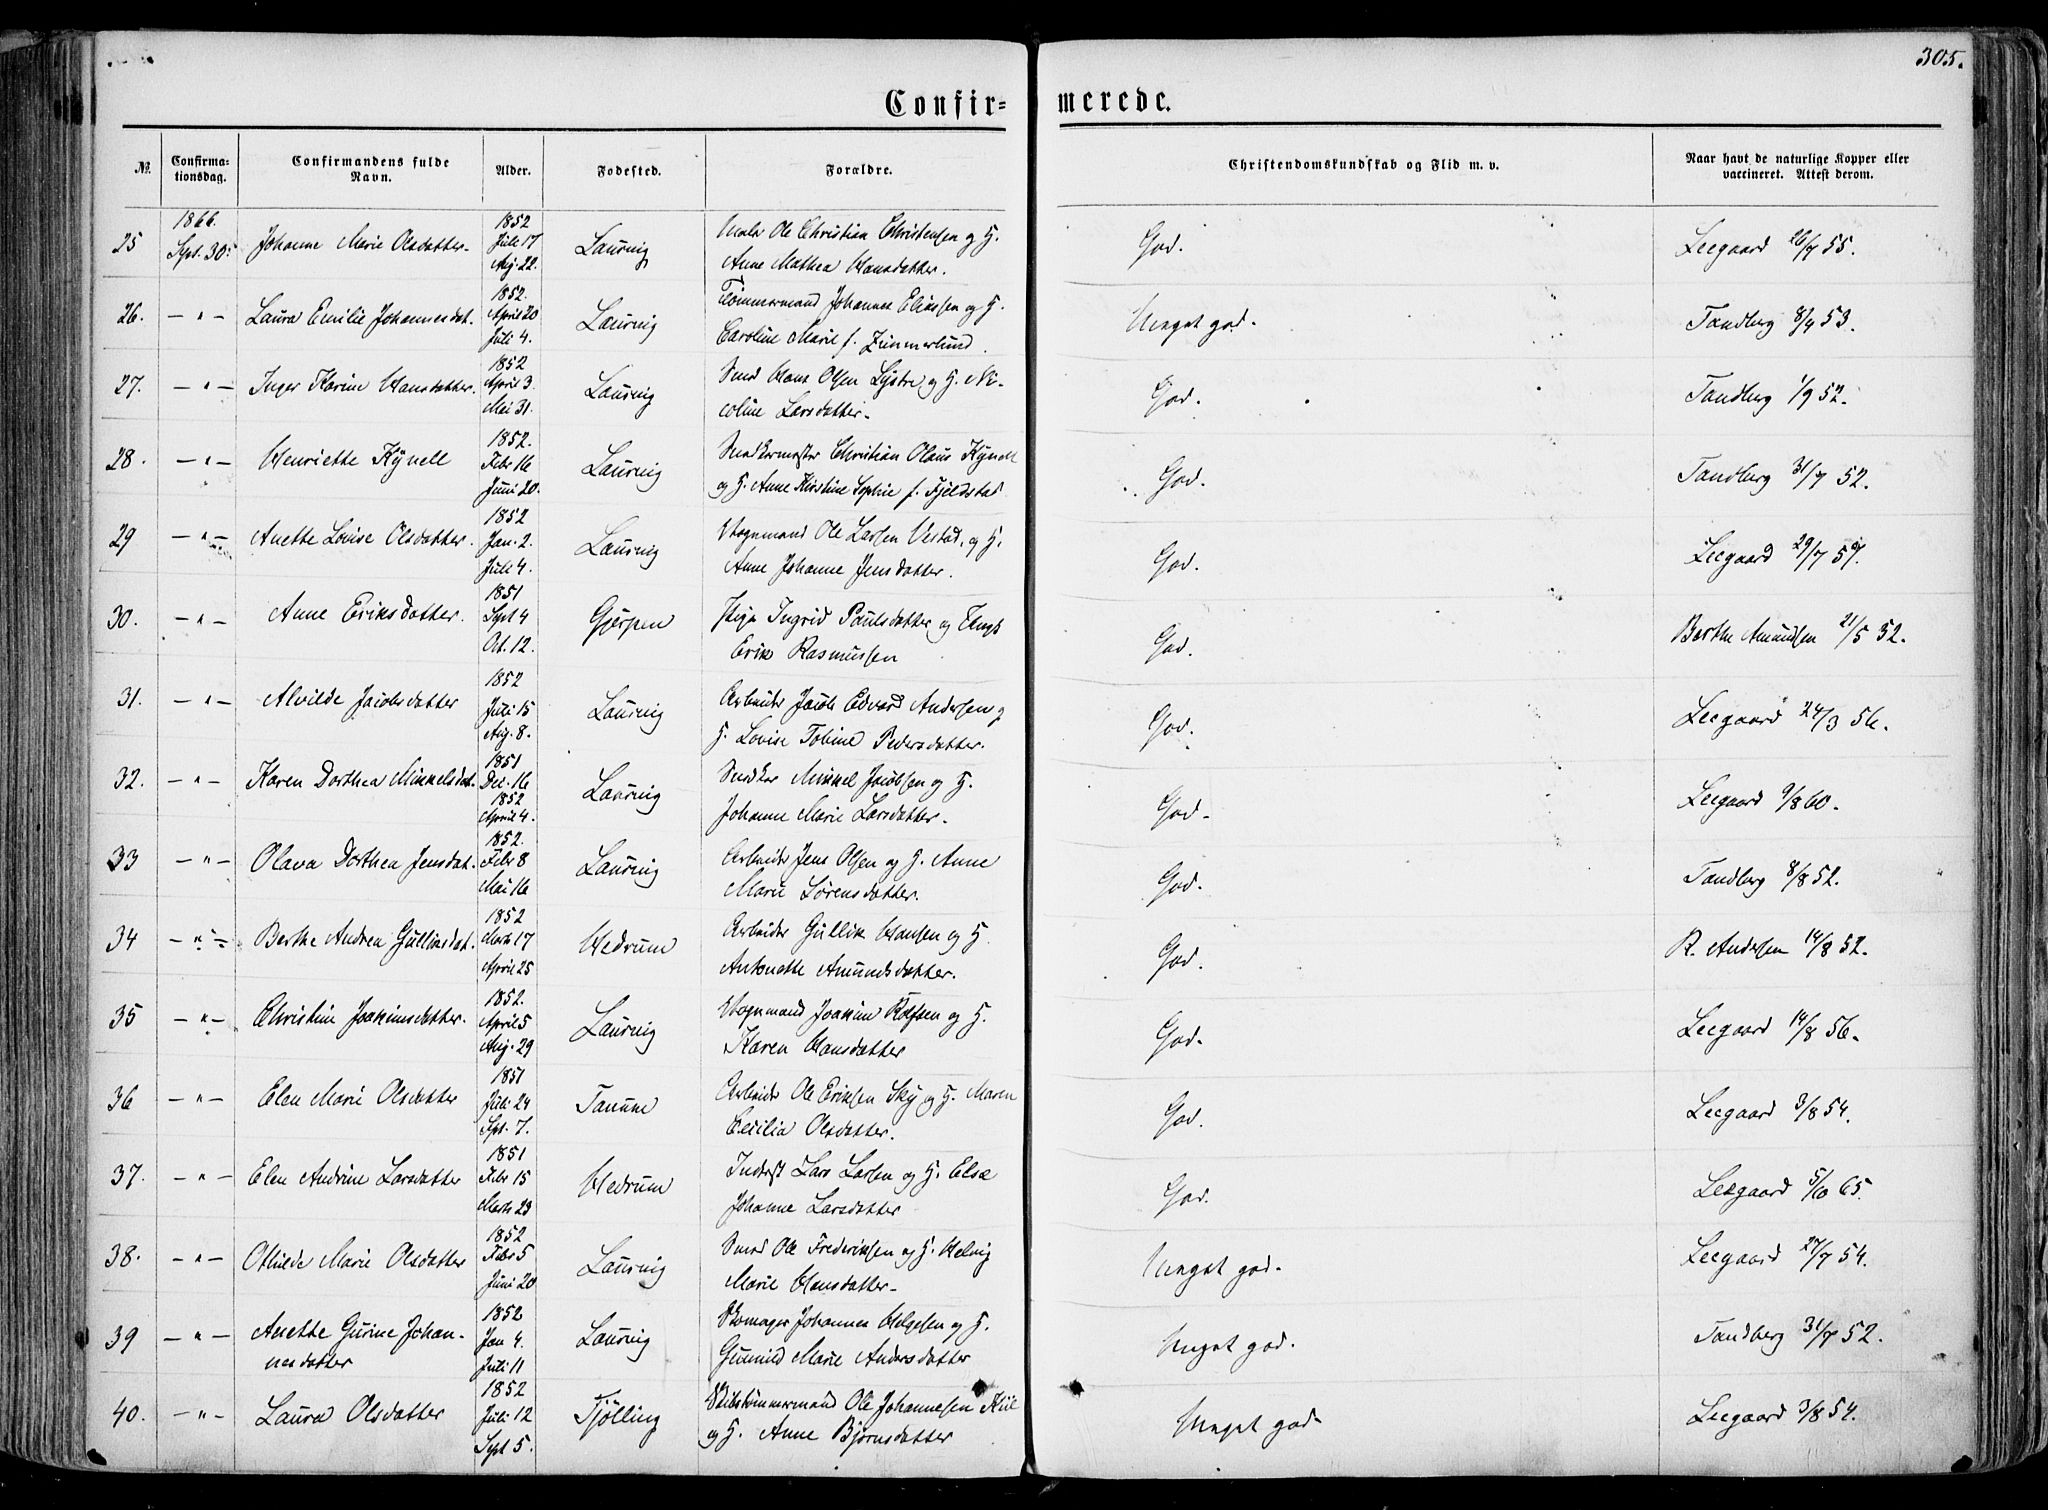 305.
Confir-
merede.
№
Confirma-
tionsdag.
Confirmandens fulde
Navn.
Alder.
Fødested.
Forældre.
Christendomskundskab og Flid m. v.
Naar havt de naturlige Kopper eller
vaccineret. Attest derom.
1866.
1852
25 Sept. 30. Johanne Marie Olsdatter. Juli 17 Laurvig Ole Christian Christensen og H. God. Leegaard 26/7 55.
Aug. 22. Anne Mathea Hansdatter.
1852.
26. — " — Laura Emilie Johannesdat. April 20 Laurvig Tømmermand Johannes Eliassen og H. Meget god. Tandberg 8/9 53.
Juli 4. Caroline Marie f. Zimmerlund.
1852
27. — " — Inger Karine Hansdatter. April 3. Laurvig Smed Hans Olsen Lystre og H. Ni- God. Tandberg 1/9 52.
Mai 31. coline Larsdatter.
1852.
28. — " — Henriette Kynell Febr 16 Laurvig Snedkermester Christian Olaus Kynell God. Tandberg 31/7 52.
Juni 20. og H. Anne Kirstine Sophie f. Fjeldstad
1852
29 — " — Anette Lovise Olsdatter. Jan. 2. Laurvig Vognmand Ole Larsen Vestad, og H. God. Leegaard 29/7 57.
Juli 4. Anne Johanne Jensdatter.
1851
30. — " — Anne Eriksdatter. Sept 4 Gjerpen Pige Ingrid Paulsdatter og Ungk God. Berthe Amundsen 21/5 52.
Oct. 12. Erik Rasmussen
1852
31. — " — Alvilde Jacobsdatter Juli 15 Laurvig Arbeider Jacob Edvard Andersen og God. Leegaard 24/3 56.
Aug. 8. H. Lovise Tobine Pedersdatter.
1851
32. — " — Karen Dorthea Mikkelsdat. Dec. 16 Laurvig Snedker Mikkel Jacobsen og H. God. Leegaard 9/8 60.
1852
April 4. Johanne Marie Larsdatter.
1852.
33 — " — Olava Dorthea Jensdat. Febr 8 Laurvig Arbeider Jens Olsen og H. Anne God. Tandberg 8/8 52.
Mai 16 Marie Sørensdatter.
1852
34 — " — Berthe Andrea Gulliksdat. Marts 17 Hedrum Arbeider Gullik Hansen og H. God. R. Andersen 14/8 52.
April 25 Antonette Amundsdatter.
1852.
35 — " — Christine Joakimsdatter. April 5 Laurvig Vognmand Joakim Rolfsen og H. God. Leegaard 14/8 56.
Aug. 29 Karen Hansdatter
1851
36 — " — Elen Marie Olsdatter Juli 24 Tanum Arbeider Ole Eriksen Sky og H. Maren God. Leegaard 3/8 54.
Sept. 7. Cecilia Olsdatter.
1851
37. — " — Elen Andrine Larsdatter Febr 15 Hedrum Inderst Lars Larsen og H. Else God. Leegaard 5/10 65.
Marts 23 Johanne Larsdatter
1852
38. — " — Othilde Marie Olsdatter Febr 5 Laurvig Smed Ole Frederiksen og H. Helvig Meget god. Leegaard 27/7 54.
Juni 20 Marie Hansdatter
1852
39 — " — Anette Gurine Johan- Jan 4. Laurvig Skomager Johannes Helgesen og H. Meget god. Tandberg 31/7 52.
nesdatter Juli 11 Gunnild Marie Andersdatter
1852
40. — " — Laura Olsdatter Juli 12 Tjølling Skibstømmermand Ole Johannesen Kiil Meget god. Leegaard 3/8 54.
Sept 5. og H. Anne Bjørnsdatter